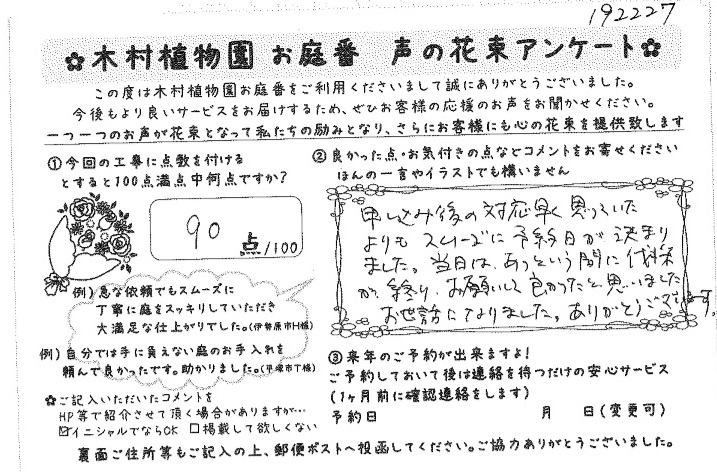 192227
✿木村植物園 お庭番 声の花束アンケート✿
この度は木村植物園お庭番をご利用くださいまして誠にありがとうございました。
今後もより良いサービスをお届けするため、ぜひお客様の応援のお声をお聞かせください。
一つ一つのお声が花束となって私たちの励みとなり、さらにお客様にも心の花束を提供致します
①今回の工事に点数を付ける
とすると100点満点中何点ですか?
90 点/100
例)急な依頼でもスムーズに
丁寧に庭をスッキリしていただき
大満足な仕上がりでした。(伊勢原市H様)
例)自分では手に負えない庭のお手入れを
頼んで良かったです。助かりました。(平塚市T様)
✿ご記入いただいたコメントを
HP等で紹介させて頂く場合がありますが…
☑イニシャルでならOK □掲載して欲しくない
②良かった点・お気付きの点などコメントをお寄せください
ほんの一言やイラストでも構いません
申し込み後の対応早く思っていた
よりも スムーズに 予約日が 決まり
ました。当日は、あっという間に 伐採
が、終り、お願いして良かったと思いました
お世話になりました。ありがとうございます。
③来年のご予約が出来ますよ!
ご予約しておいて後は連絡を待つだけの安心サービス
(1ヶ月前に確認連絡をします)
予約日 月 日(変更可)
裏面ご住所等もご記入の上、郵便ポストへ投函してください。ご協力ありがとうございました。